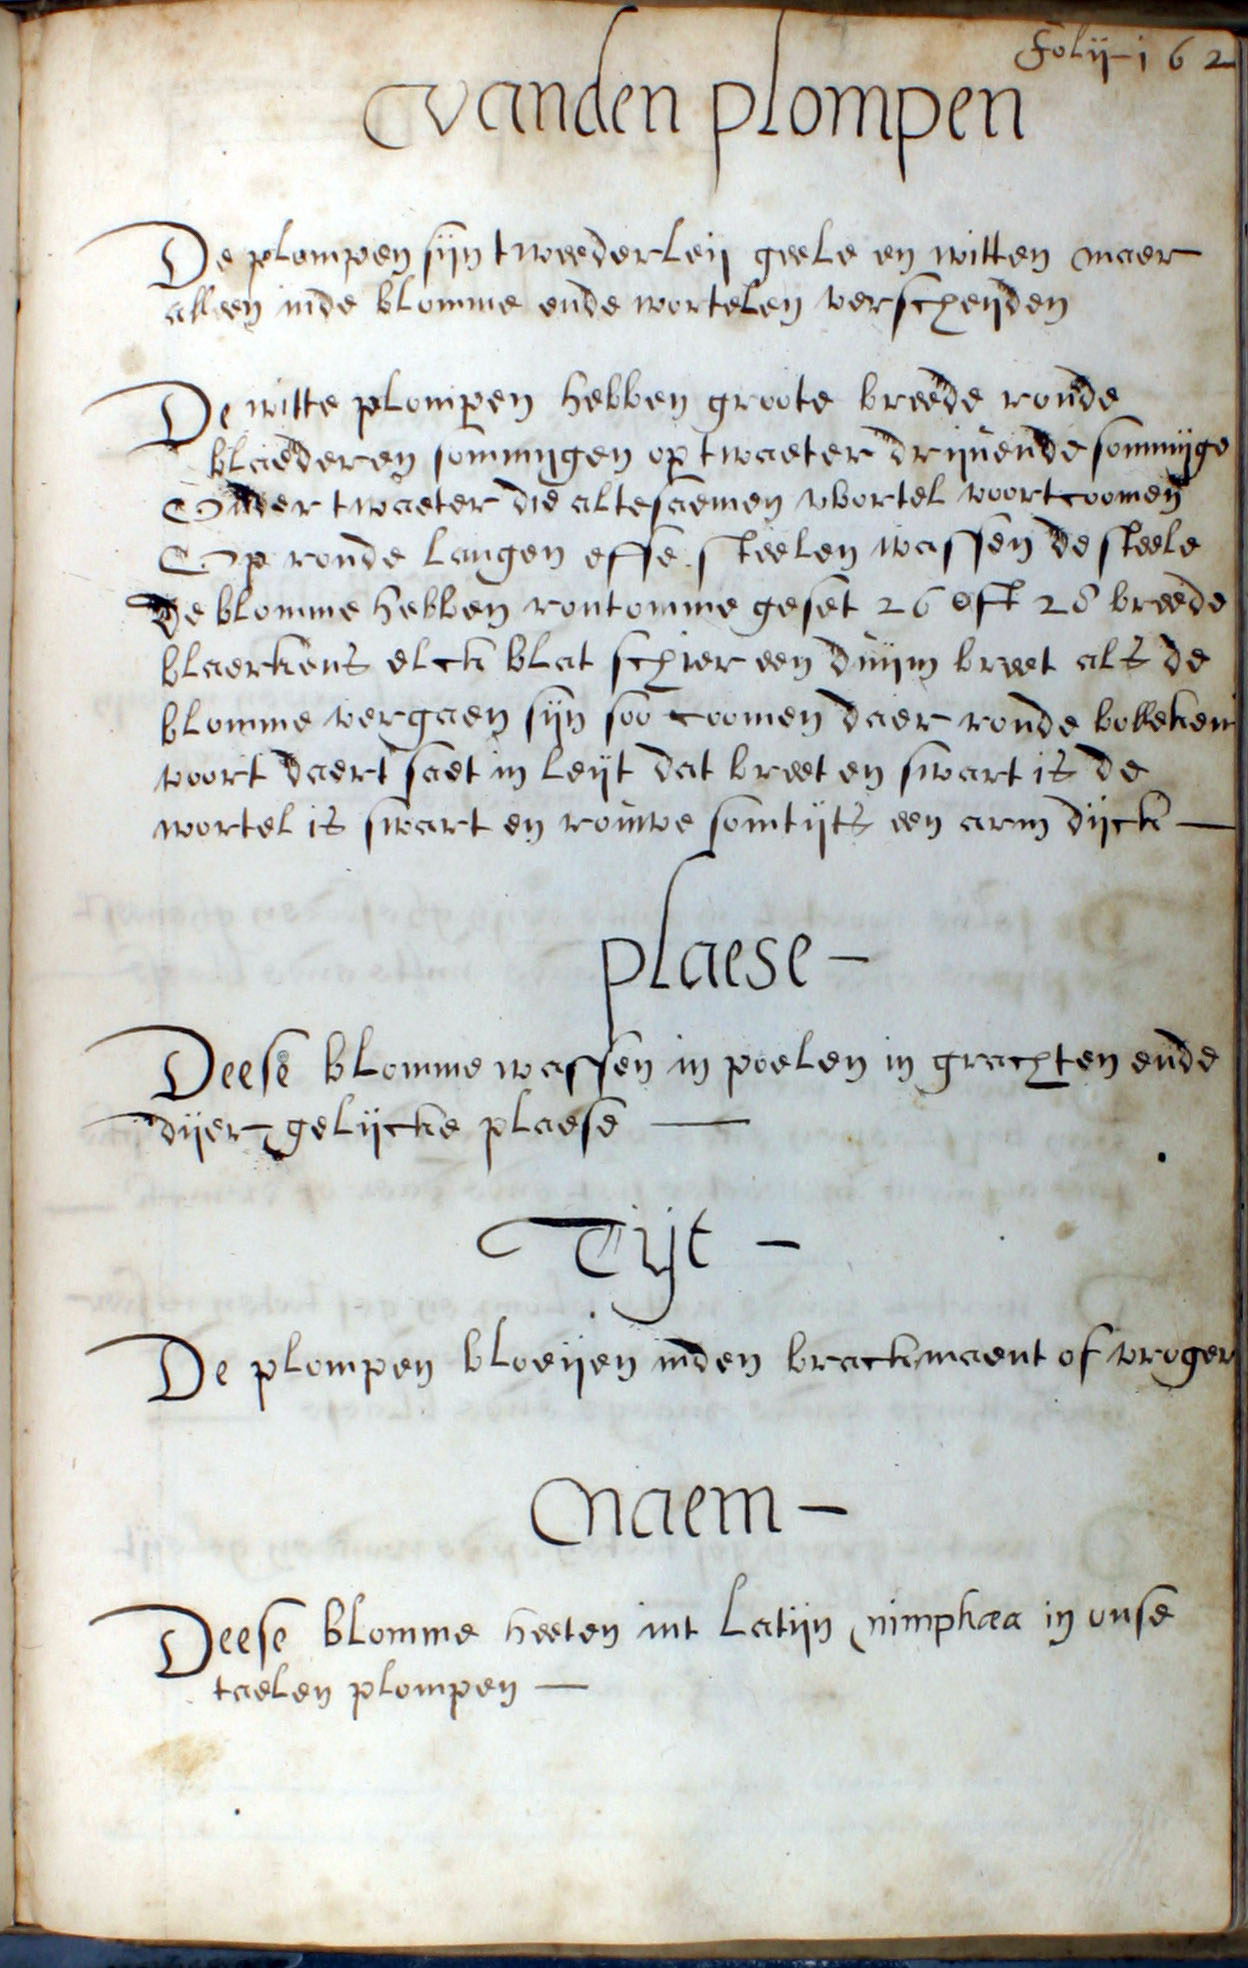 Folij 162
vanden plompen
De plompen sijn tweederleij geele en witten maer
alleen inde blomme ende wortelen verscheijden
De witte plompen hebben groote breede ronde
blaederen sommijgen op twaeter drijuende sommijge
Onder twaeter die altesaemen wortel voortcoomen
Op ronde langen effe steelen wassen de steele
De blomme hebben rontomme geset 26 oft 28 breede
blaerkens elck blat schier een duijm breet als de
blomme vergaen sijn soo coomen daer ronde bolleken
voort daert saet in leijt dat breet en swart is de
wortel is swart en rouwe somtijts een arm dijck
plaese
Deese blomme wassen in poelen in grachten ende
dijer gelijcke plaese
Tijt
De plompen bloeijen inden brackmaent of vroger
Naem
Deese blomme heeten int Latijn nimphæa in onse
taelen plompen